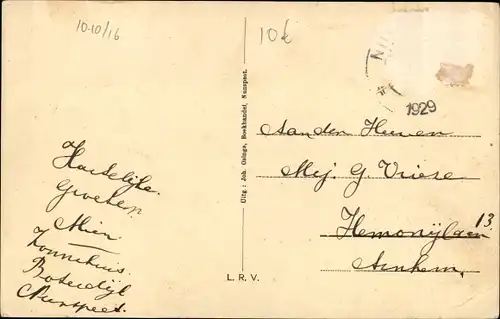 10-10/16
10 €
NU
1929
Aan den Heeren
Mej G. Vriese
Hemonylaan 13
Arnhem,
Hartelijke
Groeten
Mien
Zonnehuis
Nunspeet.
Uitg : Joh. Osinga, Boekhandel, Nunspeet.
L. R. V.